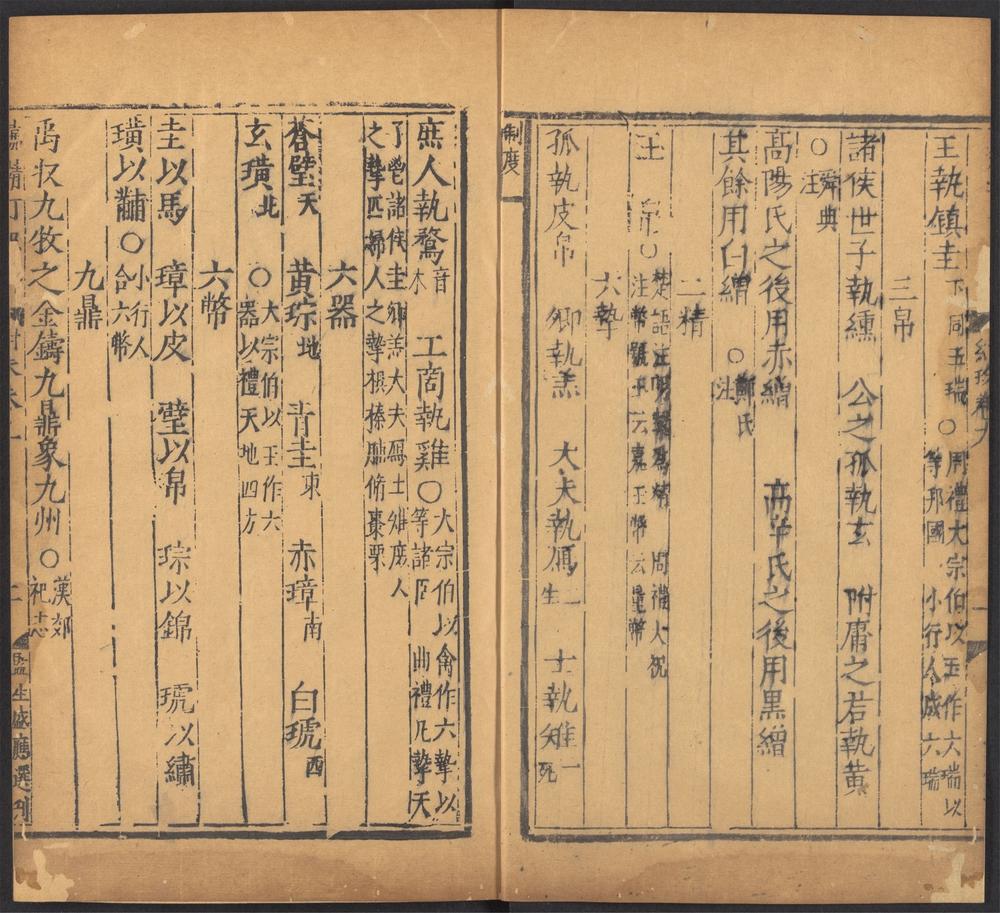 紺珠卷九
一
王執鎮圭 下同五瑞 ○ 周禮大宗伯以玉作六瑞以等邦國 小行人成六瑞
三帛
諸侯世子執纁 公之孤執玄 附庸之君執黃
○ 舜典注
高陽氏之後用赤繒 高辛氏之後用黑繒
其餘用白繒 ○ 鄭氏注
二精
玉 帛 ○ 楚語注明潔為精 周禮大祝注幣號玉云嘉玉幣云量幣
六摯
孤執皮帛 卿執羔 大夫執鴈 二生 士執雉 一死
制度
庶人執鶩 音木 工商執雞 ○ 大宗伯以禽作六摯以等諸臣 曲禮凡摯天
子鬯諸侯圭卿羔大夫鴈士雉庶人之摯匹婦人之摯椇榛脯脩棗栗
六器
蒼璧天 黃琮地 青圭東 赤璋南 白琥西
玄璜北 ○ 大宗伯以玉作六器以禮天地四方
六幣
圭以馬 璋以皮 璧以帛 琮以錦 琥以繡
璜以黼 ○ 小行人合六幣
九鼎
禹収九牧之金鑄九鼎象九州 ○ 漢郊祀志
二 監生盛應選刊